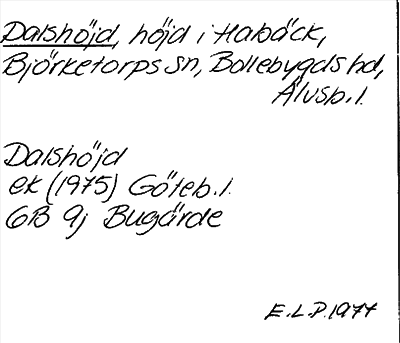 Dalshöjd, höjd i Habäck,
Björketorps sn, Bollebygds hd,
Älvsb. l.
Dalshöjd
ek (1975) Göteb. l.
6B 9j Bugärde
E.L.P. 1977